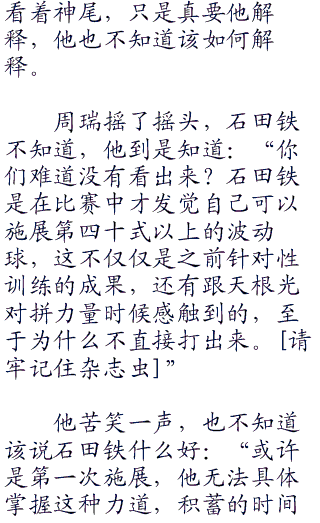 看着神尾，只是真要他解
释，他也不知道该如何解
释。
周瑞摇了摇头，石田铁
不知道，他到是知道：“你
们难道没有看出来？石田铁
是在比赛中才发觉自己可以
施展第四十式以上的波动
球，这不仅仅是之前针对性
训练的成果，还有跟天根光
对拼力量时候感触到的，至
于为什么不直接打出来。[请
牢记住杂志虫]”
他苦笑一声，也不知道
该说石田铁什么好：“或许
是第一次施展，他无法具体
掌握这种力道，积蓄的时间